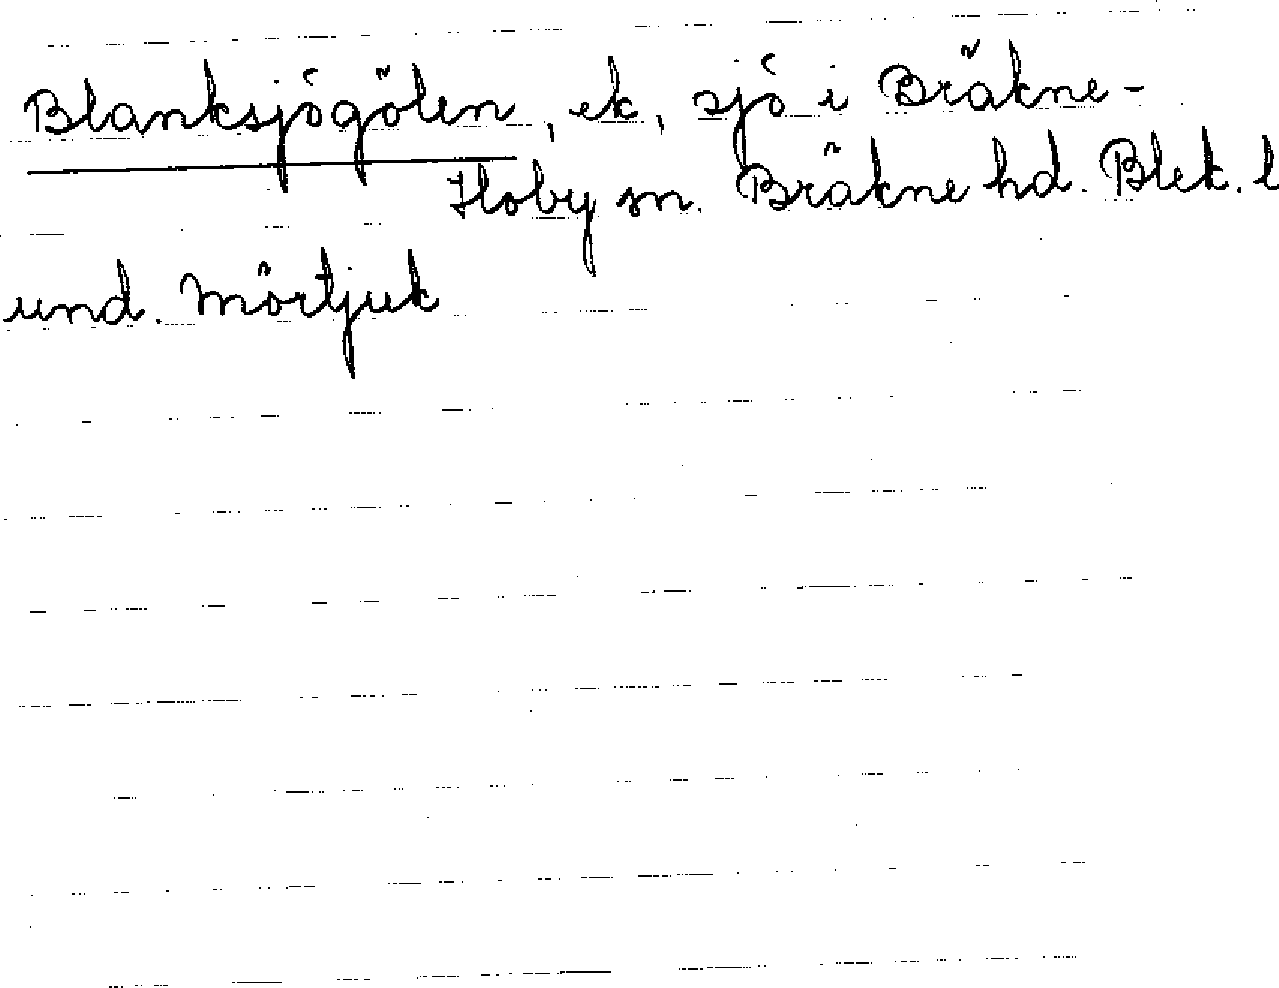 Blanksjögölen, ek, sjö i Bräkne-
Hoby sn. Bräkne hd. Blek. l
und. Mörtjuk